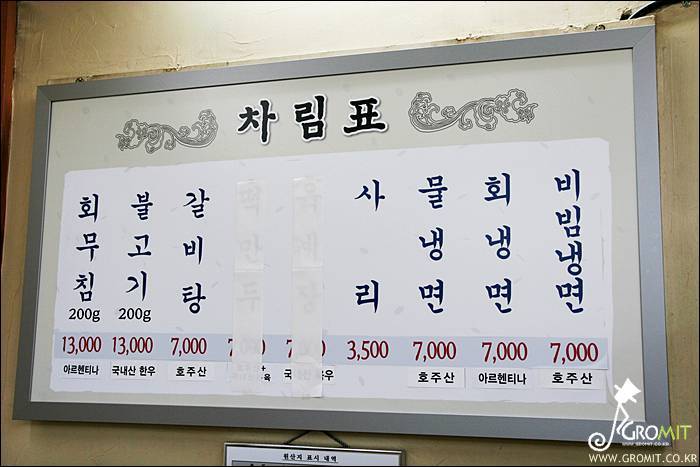 차림표
회무침 200g 13,000 아르헨티나
불고기 200g 13,000 국내산 한우
갈비탕 7,000 호주산
사리 3,500
물냉면 7,000 호주산
회냉면 7,000 아르헨티나
비빔냉면 7,000 호주산
원산지 표시 내역
GROMIT
WWW.GROMIT.CO.KR
WWW.GROMIT.CO.KR